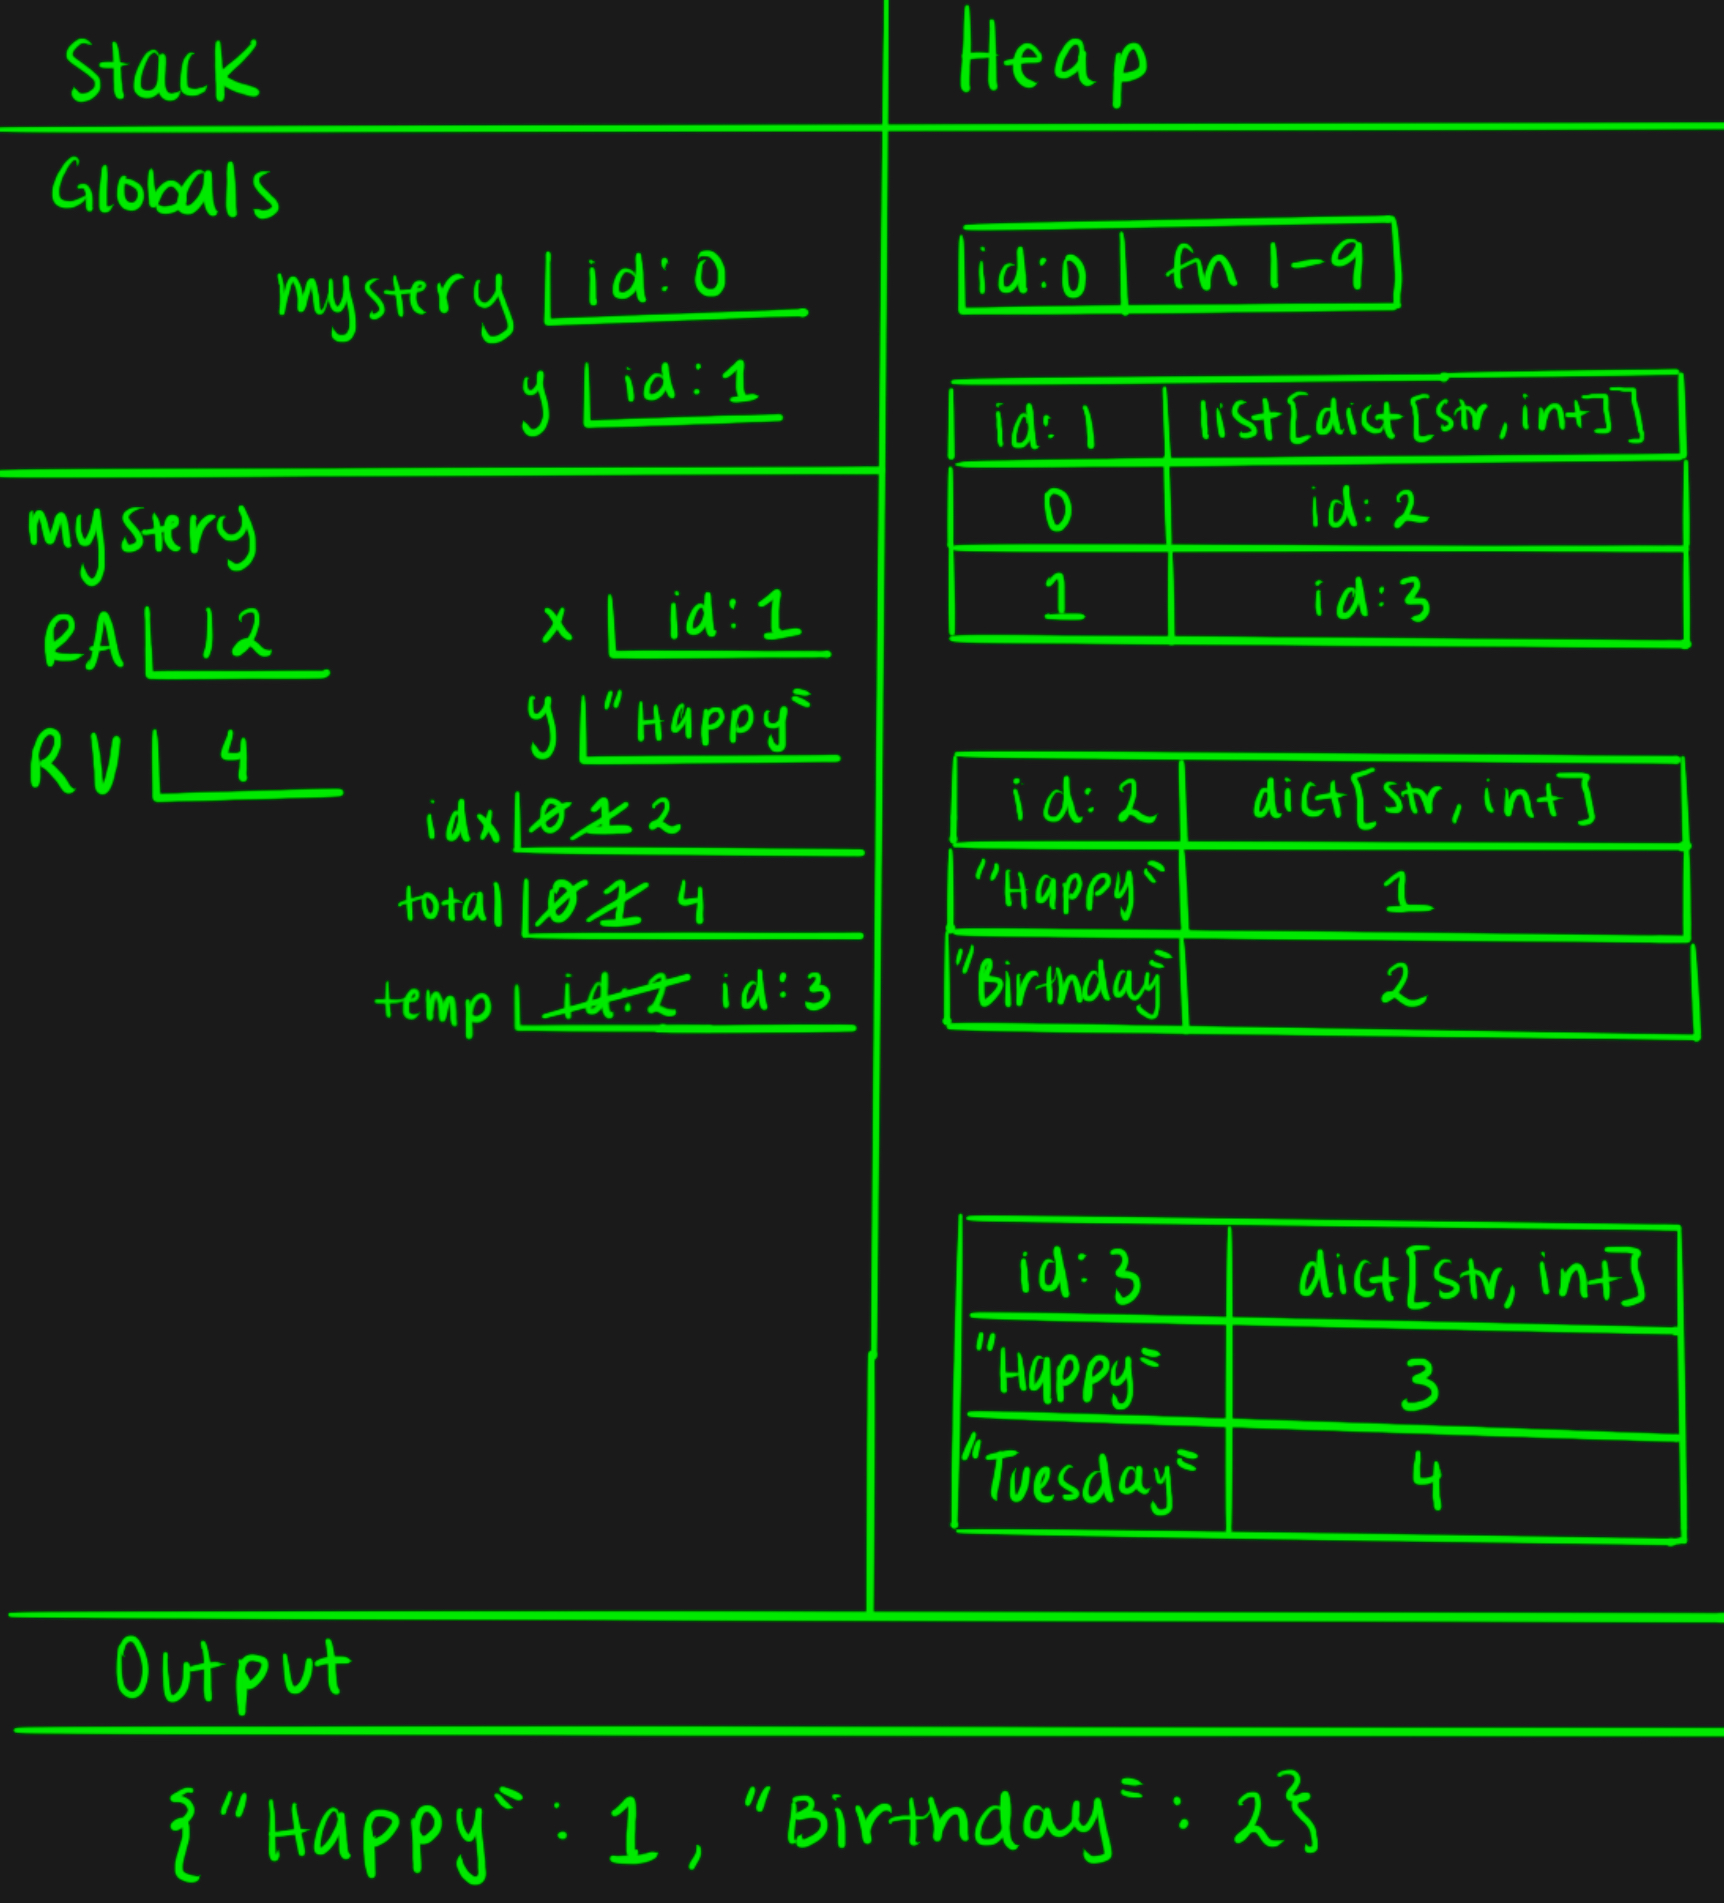 Stack
Heap
Globals
mystery id:0
y id:1
mystery
RA 12
RV 4
x id:1
y "Happy"
idx 0 1 2
total 0 1 4
temp id:2 id:3
id:0 fn 1-9
id:1 list[dict[str,int]]
0 id:2
1 id:3
id:2 dict[str, int]
"Happy" 1
"Birthday" 2
id:3 dict[str, int]
"Happy" 3
"Tuesday" 4
Output
{"Happy": 1, "Birthday": 2}